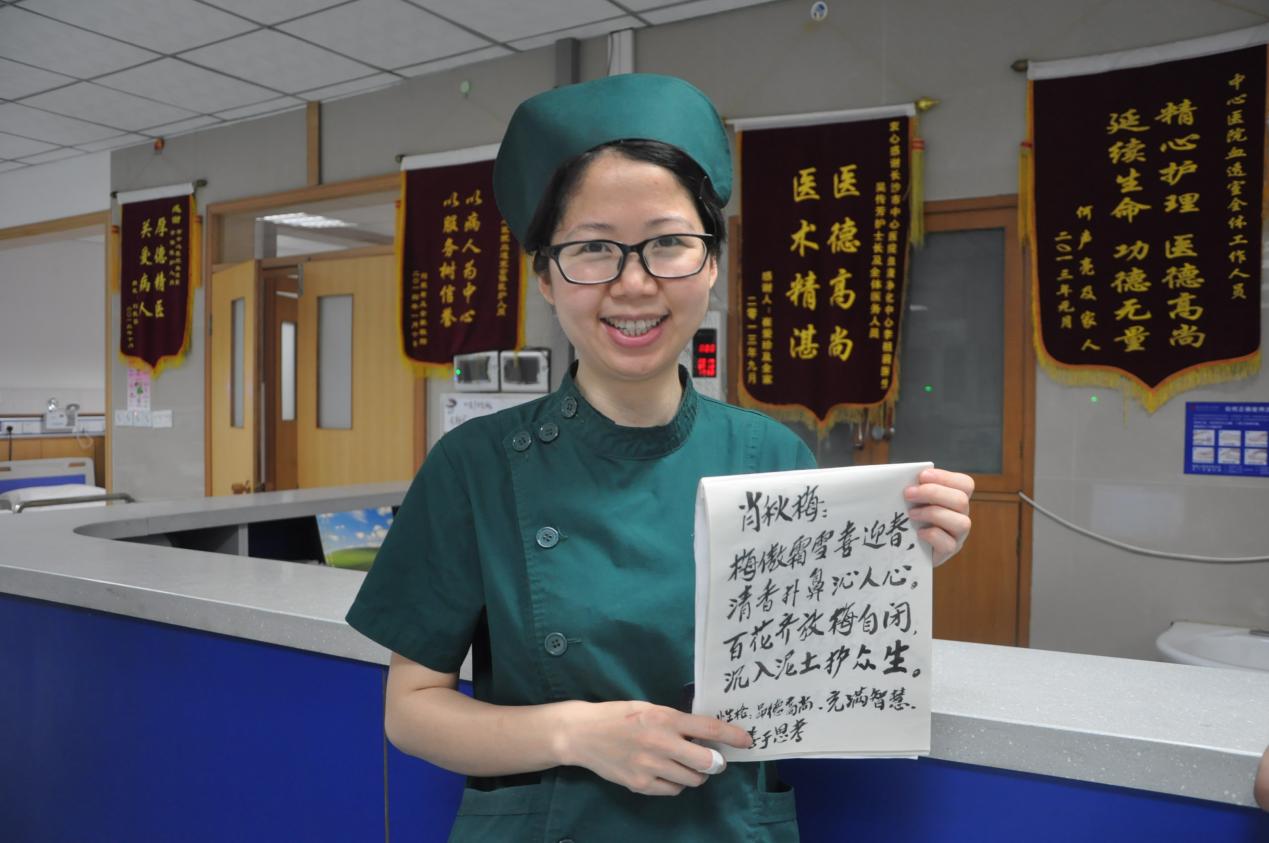 肖秋梅:
梅傲霜雪喜迎春,
清香扑鼻沁人心。
百花齐放梅自闭,
沉入泥土护众生。
性格:品德高尚、充满智慧、
善于思考
感谢
厚德精医
关爱病人
以病人为中心
以服务树信誉
医德高尚
医术精湛
二零一三年九月
中心医院血透室全体工作人员
精心护理 医德高尚
延续生命 功德无量
何声亮及家人
二〇一三年元月